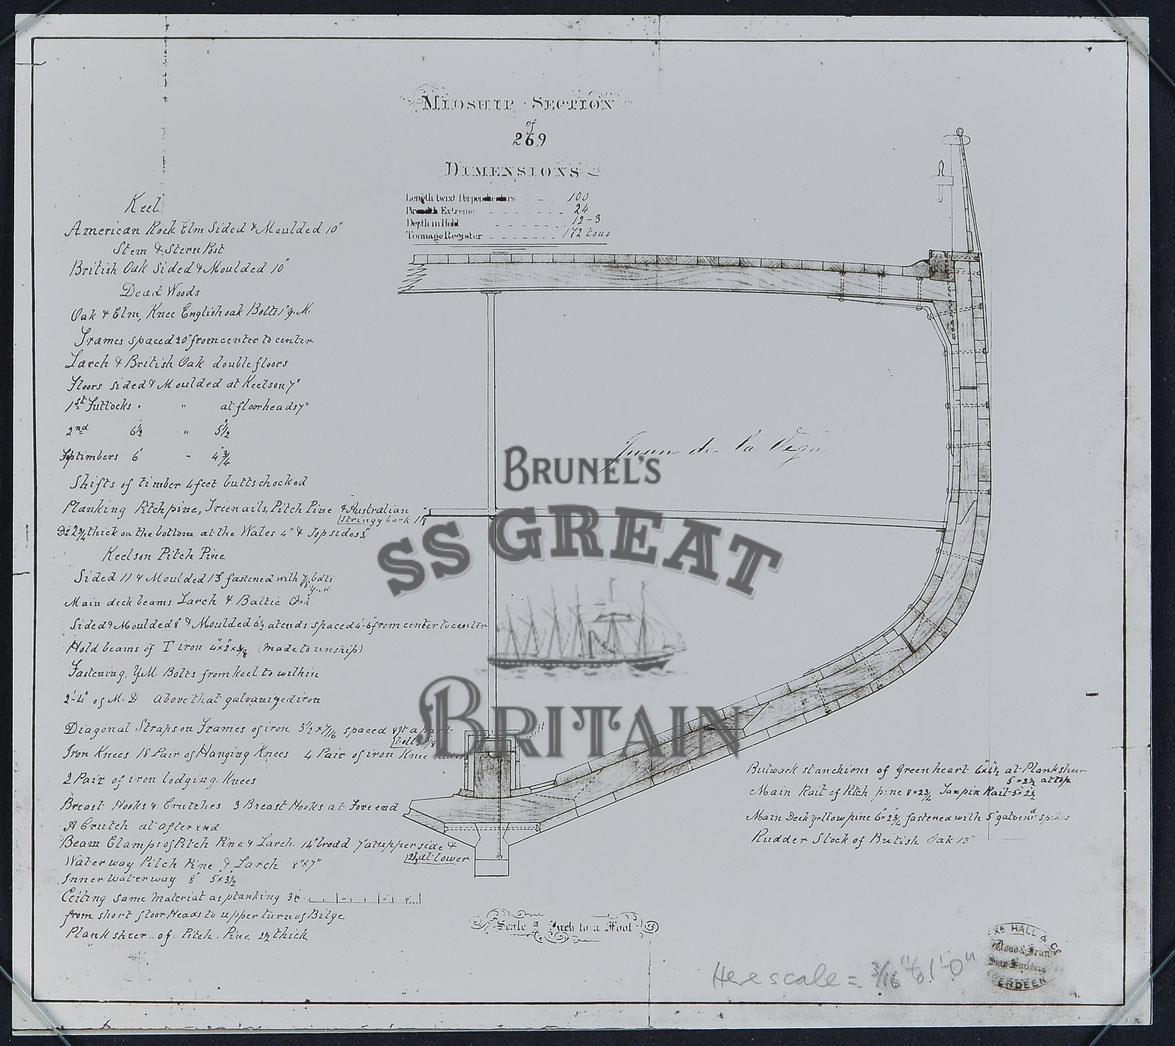 MIDSHIP SECTION
of
269
DIMENSIONS
Length twixt Perpendiculars 100
Breadth Extreme 24
Depth in Hold 12-3
Tonnage Register 172 tons
Keel
American Rock Elm Sided & Moulded 10"
Stem & Stern Post
British Oak Sided & Moulded 10"
Dead Woods
Oak & Elm, Knee English oak Bolts 1" Y.M.
Frames spaced 20" from center to center
Larch & British Oak double floors
Floors sided & Moulded at Keelson 7"
1st Futtocks " " at floorheads 7"
2nd 6½ " 5½
Toptimbers 6 " 4¾
Shifts of timber 4 feet butts chocked
Planking Pitch pine, Treenails, Pitch Pine & Australian
stringy bark
Do 2¾ thick on the bottom at the Wales 4" & Topsides 3"
Keelson Pitch Pine
Sided 11 & Moulded 13 fastened with ⅞ bolts
Y.M.
Main deck beams Larch & Baltic Oak
Sided & Moulded 8" & Moulded 6½ at ends spaced 4.6 from center to center
Hold beams of T iron 4"x2"x⅜ (made to unship)
Fastening Y.M. Bolts from keel to within
2'-4" of M.D above that galvanized iron
Diagonal Straps on Frames of iron 3½ x 7/16 spaced apart
Iron Knees 18 Pair of Hanging Knees 4 Pair of iron Knee
2 Pair of iron lodging Knees
Breast Hooks & Crutches 3 Breast Hooks at Fore end
A Crutch at after end
Beam Clamps of Pitch Pine & Larch 14" broad 7" at upper side &
at lower
Waterway Pitch Pine & Larch 8"x7"
Inner waterway 8" 5"x3½
Ceiling same material as planking
from short floor Heads to upper turn of Bilge
Planksheer of Pitch Pine 2½ thick
Juan de la Vega
BRUNEL'S
SS GREAT
BRITAIN
Bulwark stanchions of Greenheart 6"x4½ at Planksheer
5 x 3½ at top
Main Rail of Pitch pine 8 x 2¾ Taupin Rail 5"x2½
Main Deck yellow pine 6"x2¾ fastened with 5" galvend spikes
Rudder Stock of British Oak 13"
Scale Inch to a Foot
Here scale = 3/16" to 1'0"
HALL & Co
Wood & Iron
Ship Builders
ABERDEEN